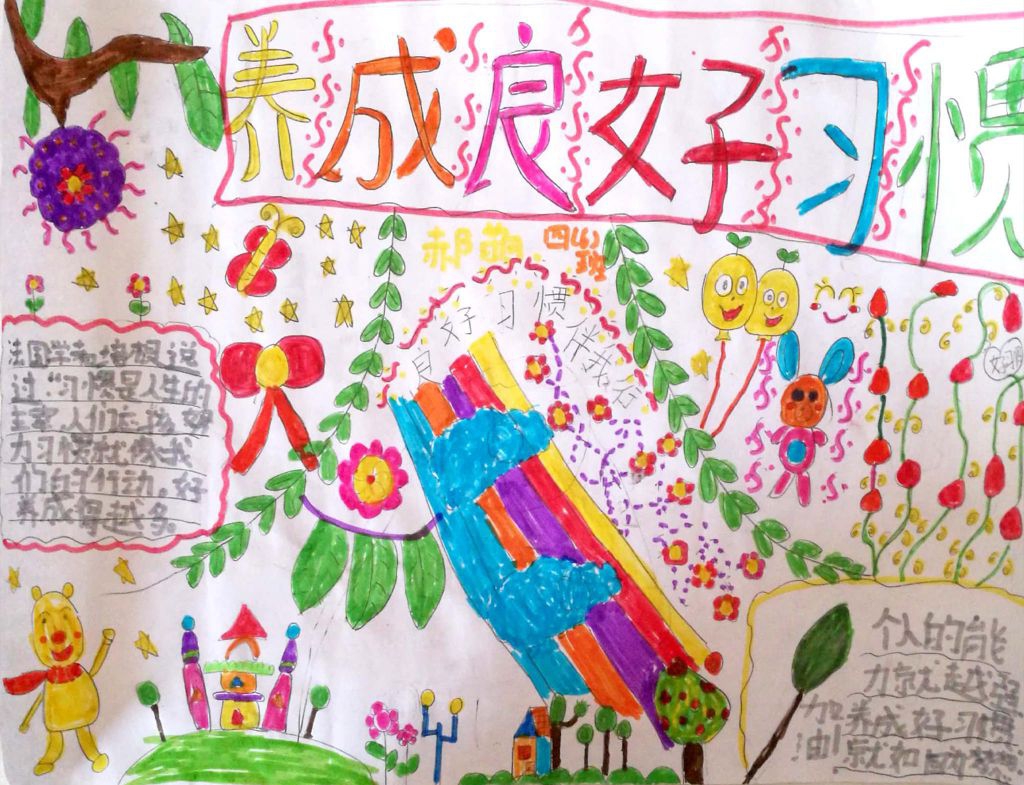 养成良好习惯
郝萌 四
班
好习惯伴我
法国学者培根说
过“习惯是人生的
主宰,人们应该努
力习惯就像我
们的行动,好
养成得越多
个人的能
力就越强
加 养成好习惯
油! 就如